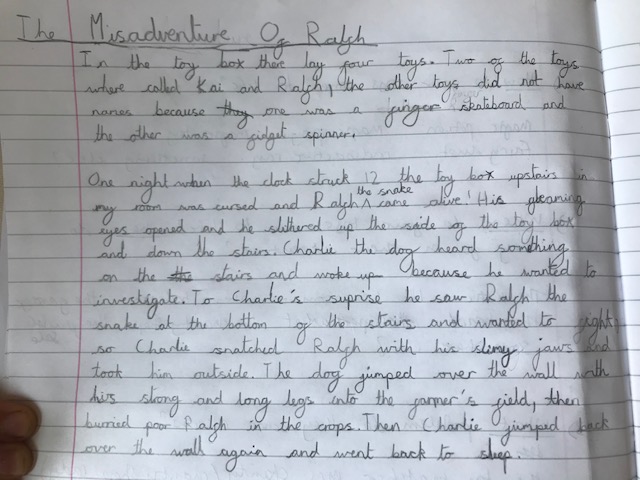 The Misadventure Of Ralph
In the toy box there lay four toys. Two of the toys
where called Kai and Ralph, the other toys did not have
names because they one was a finger skateboard and
the other was a fidget spinner.
One night when the clock struck 12 the toy box upstairs in
my room was cursed and Ralph the snake came alive! His gleaming
eyes opened and he slithered up the side of the toy box
and down the stairs. Charlie the dog heard something
on the the stairs and woke up because he wanted to
investigate. To Charlie's suprise he saw Ralph the
snake at the bottom of the stairs and wanted to fight
so Charlie snatched Ralph with his slimy jaws and
took him outside. The dog jumped over the wall with
his stong and long legs into the farmer's field, then
burried poor Ralph in the crops. Then Charlie jumped back
over the wall again and went back to sleep.